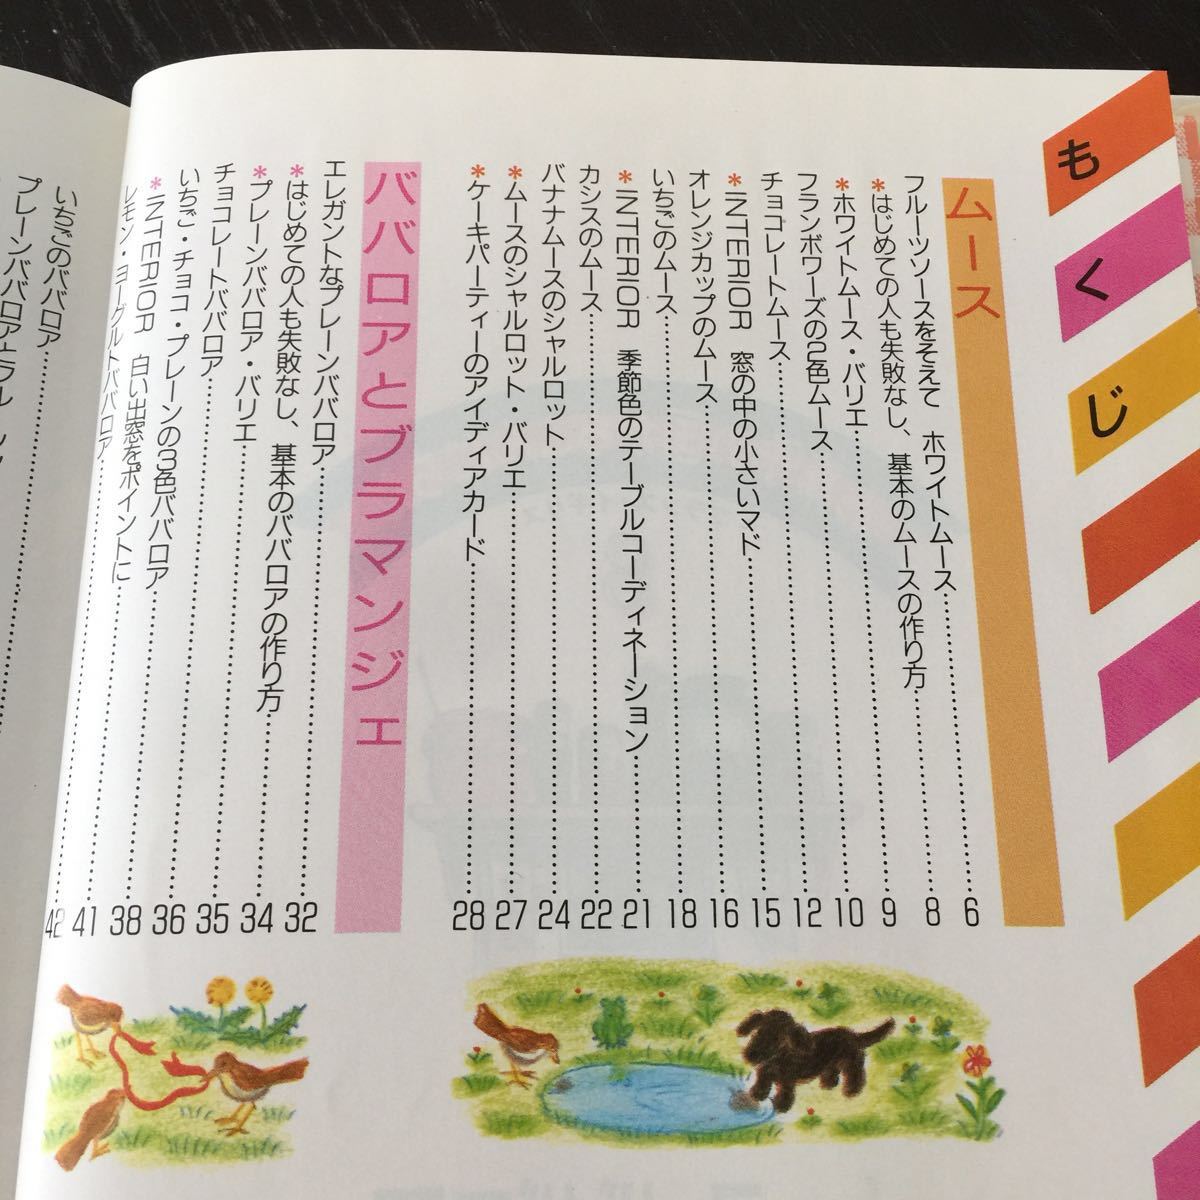 もくじ
ムース
フルーツソースをそえて ホワイトムース 6
*はじめての人も失敗なし、基本のムースの作り方 8
*ホワイトムース・バリエ 9
フランボワーズの2色ムース 10
チョコレートムース 12
*INTERIOR 窓の中の小さいマド 15
オレンジカップのムース 16
いちごのムース 18
*INTERIOR 季節色のテーブルコーディネーション 21
カシスのムース 22
バナナムースのシャルロット 24
*ムースのシャルロット・バリエ 27
*ケーキパーティーのアイディアカード 28
ババロアとブラマンジェ
エレガントなプレーンババロア 32
*はじめての人も失敗なし、基本のババロアの作り方 34
*プレーンババロア・バリエ 35
チョコレートババロア 36
いちご・チョコ・プレーンの3色ババロア 38
*INTERIOR 白い出窓をポイントに 41
レモン・ヨーグルトババロア 42
いちごのババロア
プレーンババロアとフル